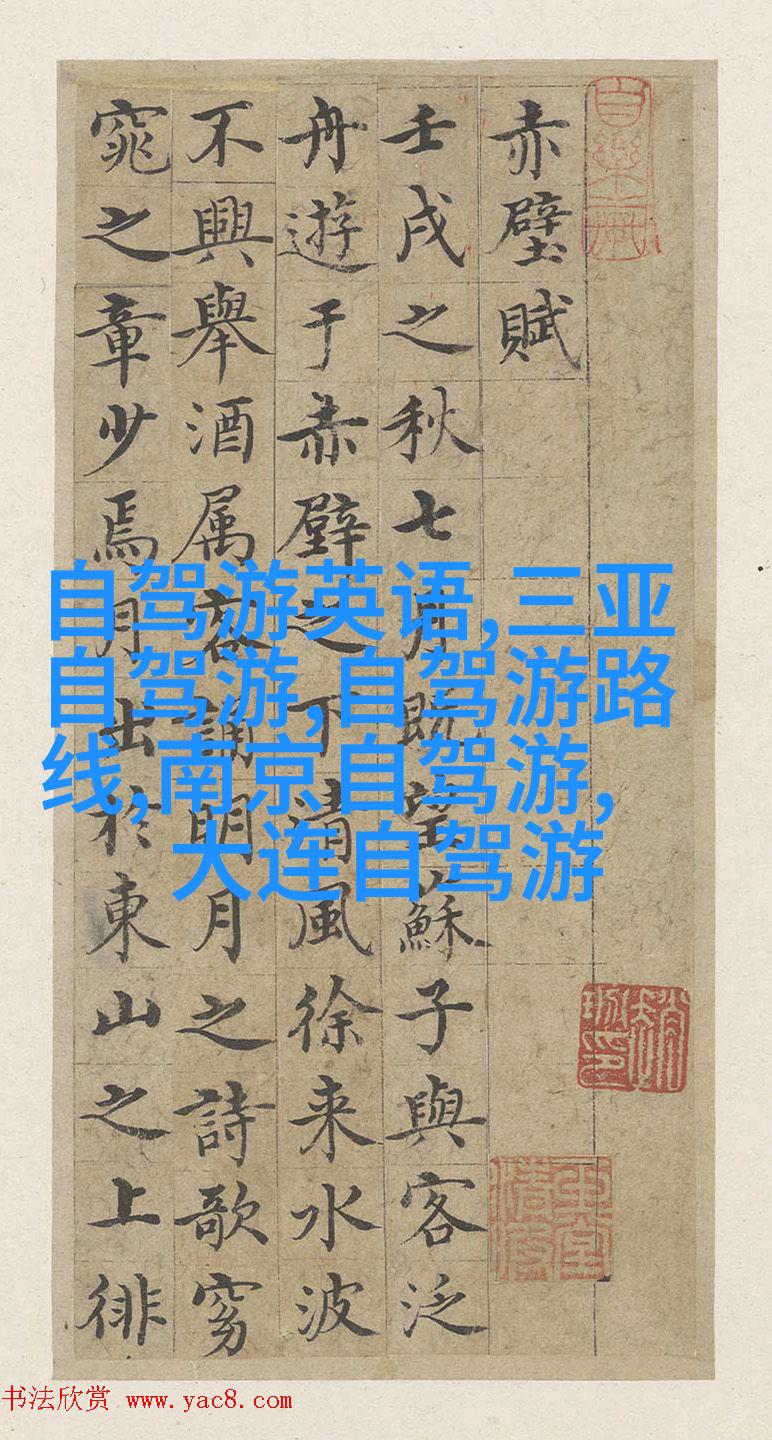 赤壁賦
壬戌之秋七月既望蘇子與客泛
舟遊于赤壁之下清風徐来水波
不興舉酒属客誦明月之詩歌窈
窕之章少焉月出於東山之上徘
自驾游英语,三亚
自驾游,自驾游路
线,南京自驾游,
大连自驾游
书法欣赏 www.yac8.com